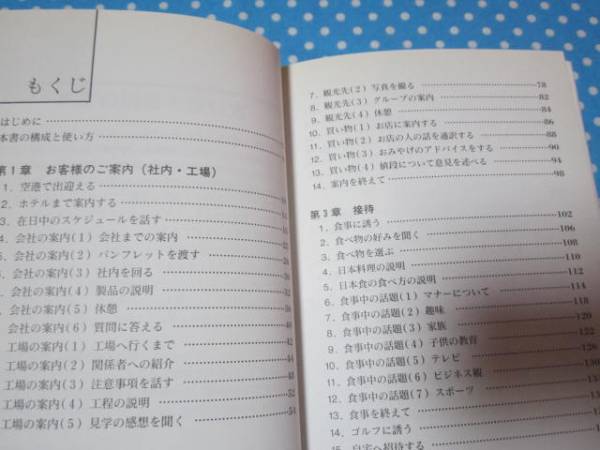 もくじ
はじめに
本書の構成と使い方
第1章 お客様のご案内（社内・工場）
1. 空港で出迎える
2. ホテルまで案内する
3. 在日中のスケジュールを話す
4. 会社の案内(1) 会社までの案内
5. 会社の案内(2) パンフレットを渡す
会社の案内(3) 社内を回る
会社の案内(4) 製品の説明
会社の案内(5) 休憩
会社の案内(6) 質問に答える
工場の案内(1) 工場へ行くまで
工場の案内(2) 関係者への紹介
工場の案内(3) 注意事項を話す
工場の案内(4) 工程の説明
工場の案内(5) 見学の感想を聞く
7. 観光先(2) 写真を撮る 78
8. 観光先(3) グループの案内 82
9. 観光先(4) 休憩 84
10. 買い物(1) お店に案内する 86
11. 買い物(2) お店の人の話を通訳する 88
12. 買い物(3) おみやげのアドバイスをする 90
13. 買い物(4) 値段について意見を述べる 94
14. 案内を終えて 98
第3章 接待
1. 食事に誘う 102
2. 食べ物の好みを聞く 106
3. 食べ物を選ぶ 108
4. 日本料理の説明 110
5. 日本食の食べ方の説明 112
6. 食事中の話題(1) マナーについて 114
7. 食事中の話題(2) 趣味 118
8. 食事中の話題(3) 家族 120
9. 食事中の話題(4) 子供の教育 122
10. 食事中の話題(5) テレビ 126
11. 食事中の話題(6) ビジネス観 130
12. 食事中の話題(7) スポーツ
13. 食事を終えて
14. ゴルフに誘う
15. 自宅へ招待する